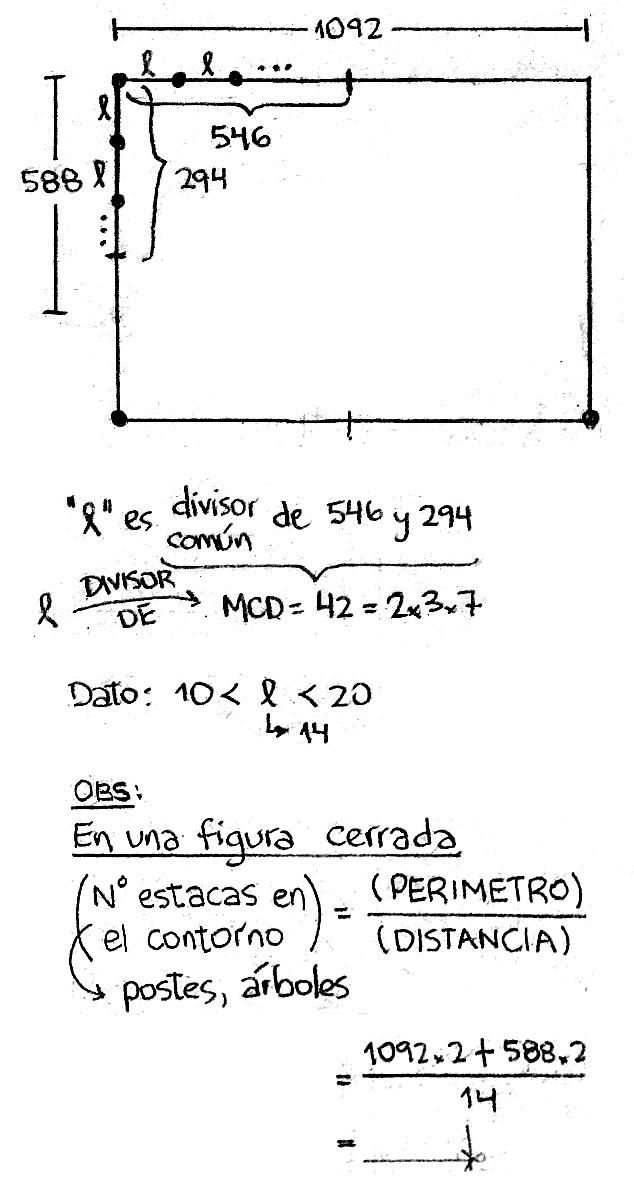 1092
l l ...
l
546
588 l 294
...
"l" es divisor común de 546 y 294
l DIVISOR DE → MCD = 42 = 2x3x7
Dato: 10 < l < 20
↳ 14
OBS:
En una figura cerrada
(N° estacas en el contorno) = (PERIMETRO) / (DISTANCIA)
↳ postes, árboles
= 1092x2 + 588x2 / 14
=